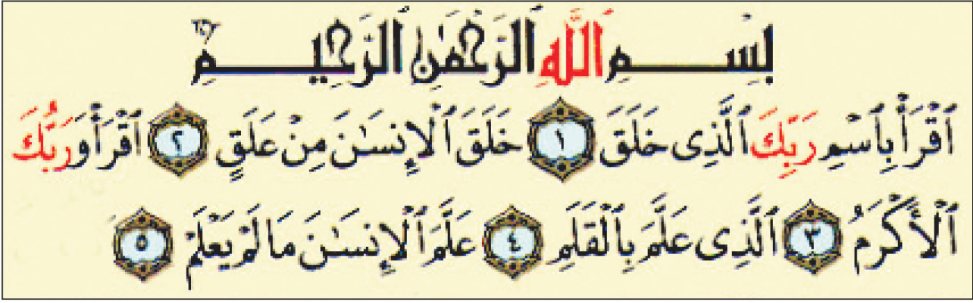 بِسْمِ ٱللَّهِ ٱلرَّحْمَٰنِ ٱلرَّحِيمِ
ٱقْرَأْ بِٱسْمِ رَبِّكَ ٱلَّذِى خَلَقَ ١ خَلَقَ ٱلْإِنسَٰنَ مِنْ عَلَقٍ ٢ ٱقْرَأْ وَرَبُّكَ
ٱلْأَكْرَمُ ٣ ٱلَّذِى عَلَّمَ بِٱلْقَلَمِ ٤ عَلَّمَ ٱلْإِنسَٰنَ مَا لَمْ يَعْلَمْ ٥